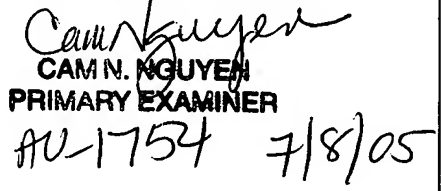 Cam N. Nguyen
CAM N. NGUYEN
PRIMARY EXAMINER
AU-1754 7/8/05